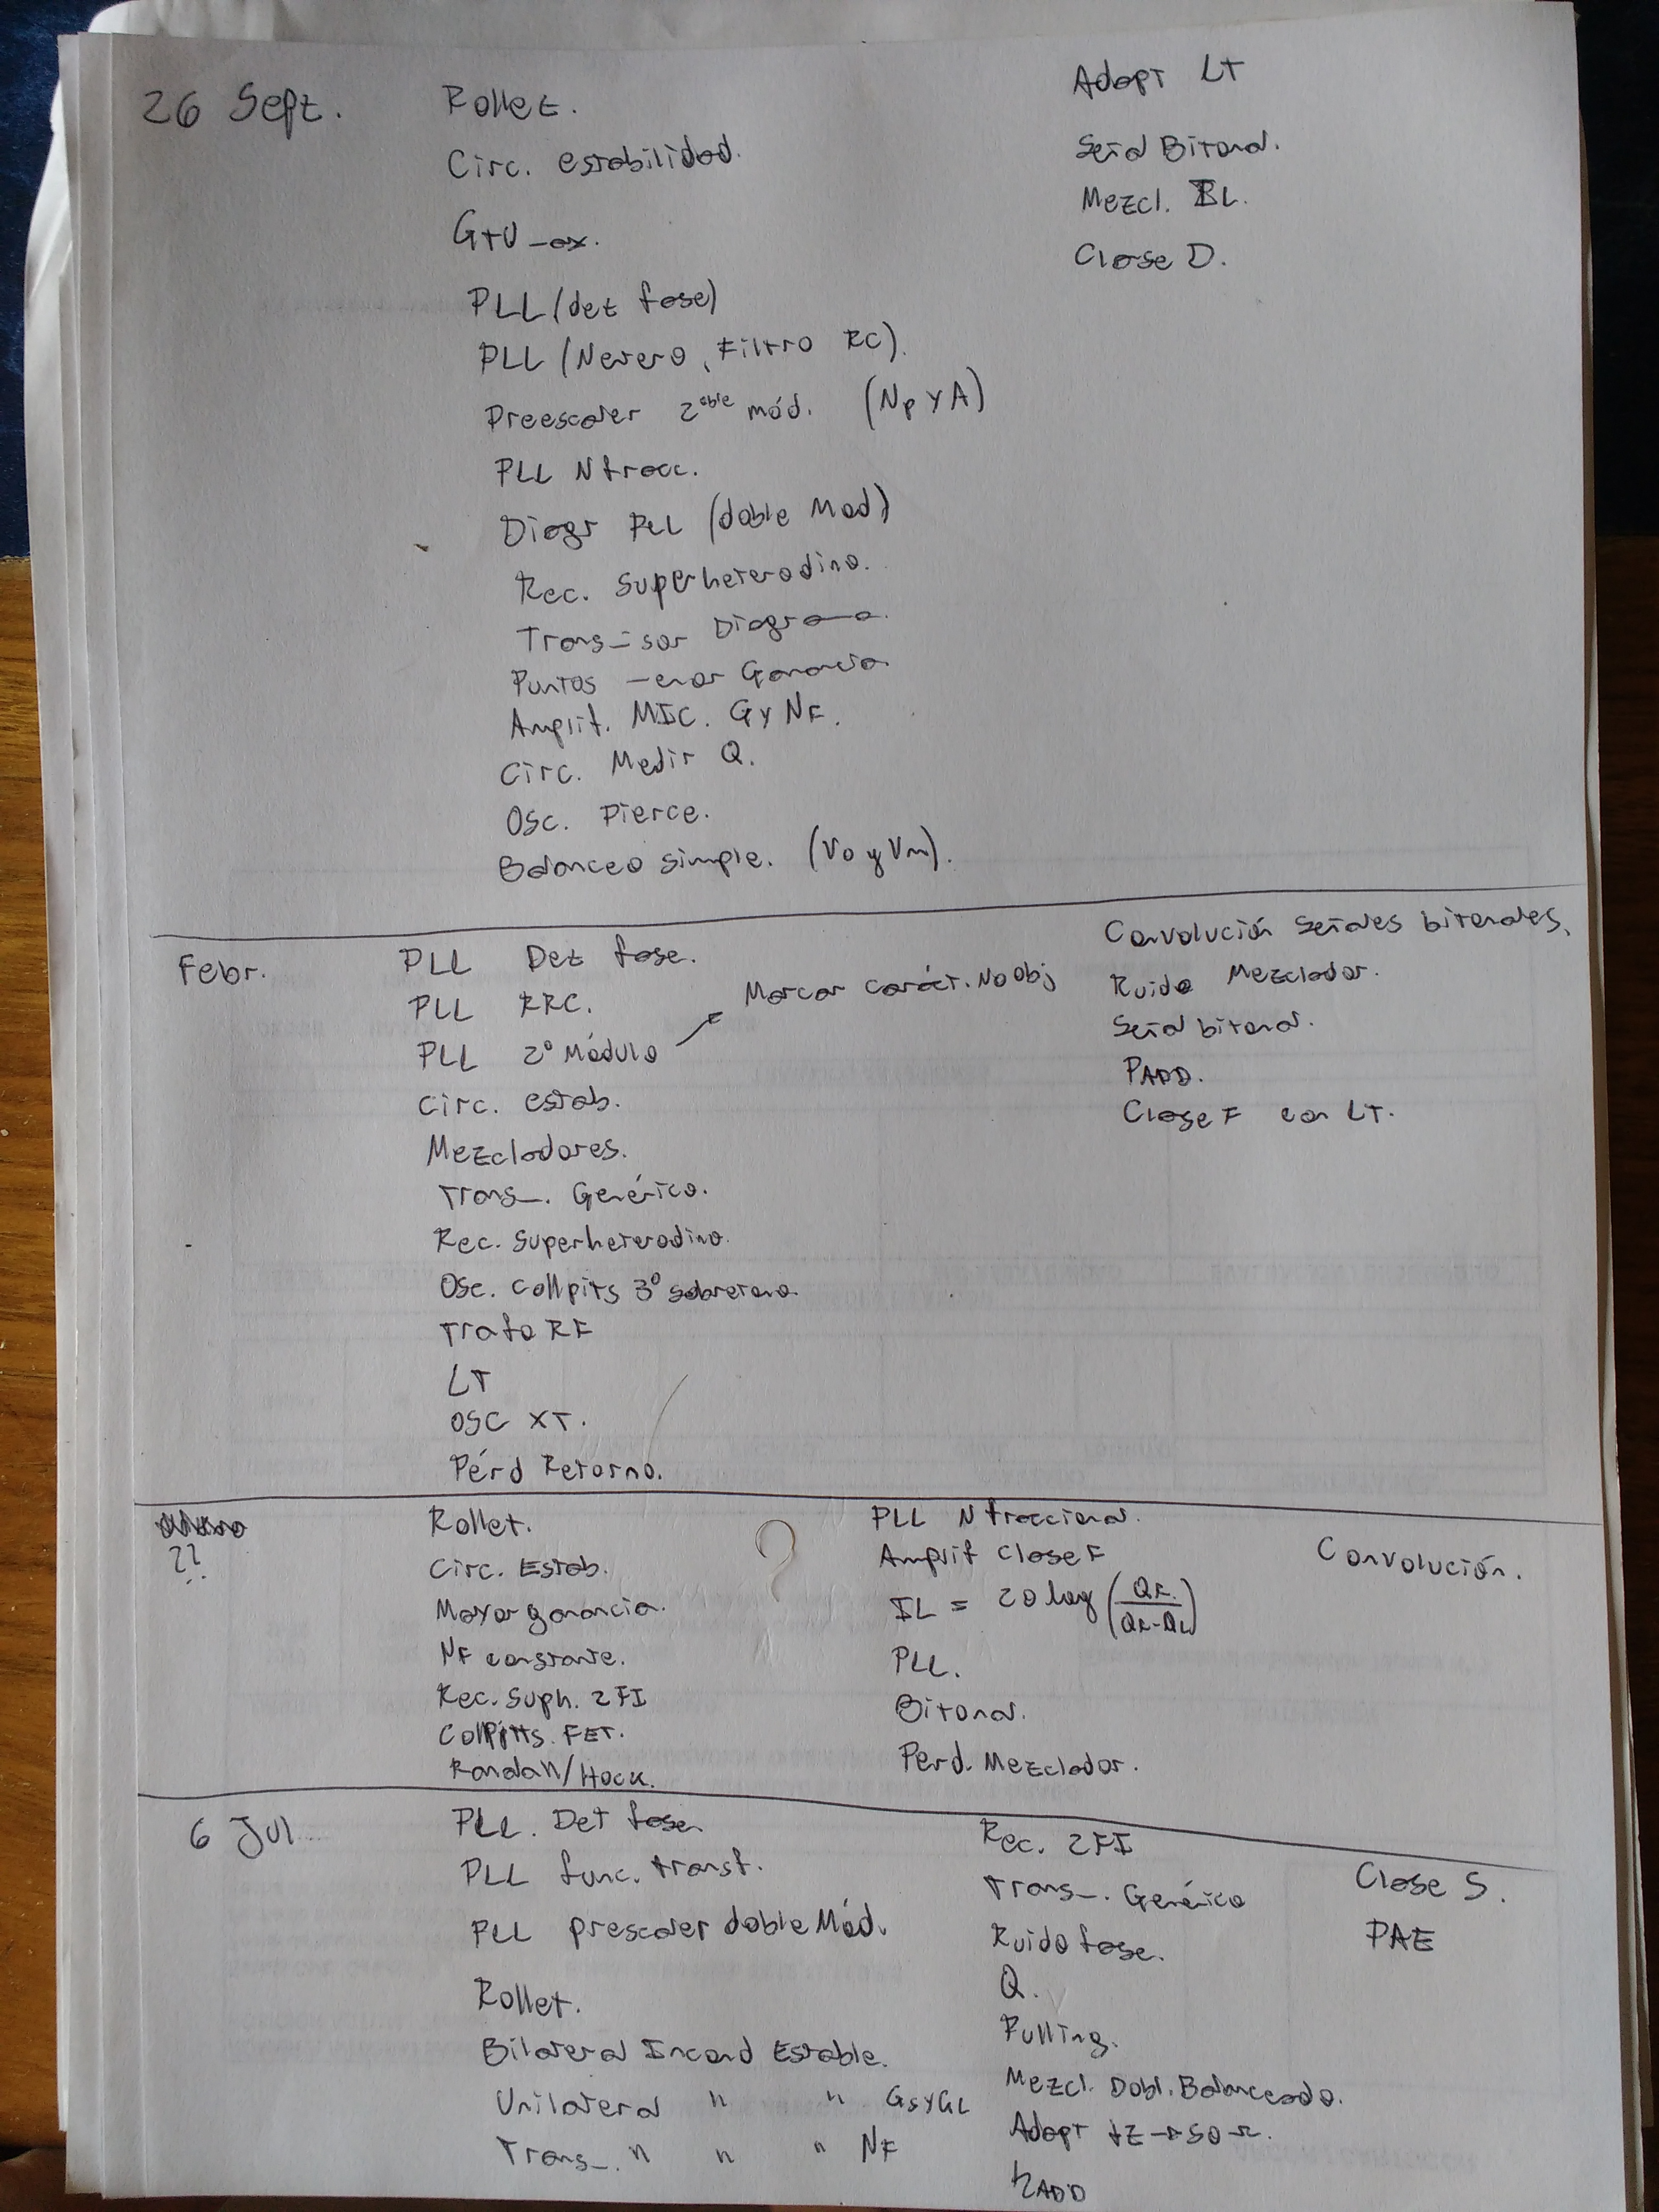 26 Sept.
Rollet.
Circ. estabilidad.
GTU max.
PLL (det fase)
PLL (Netero, Filtro RC).
Preescaler 2able mód. (Np y A)
PLL N fracc.
Diagr PLL (doble Mod)
Rec. Superheterodino.
Transmisor Diagrama.
Puntos menor Ganancia
Amplif. MIC. G y NF.
Circ. Medir Q.
Osc. Pierce.
Balanceo simple. (Vo y Vm).
Adapt LT
Señal Bitonal.
Mezcl. IL.
Clase D.
Febr.
PLL Det fase.
PLL RRC.
PLL 2º Módulo
Marcar caráct. No Obj
Circ. estab.
Mezcladores.
Transm. Genérico.
Rec. Superheterodino.
Osc. Collpits 3º sobretono.
Trafo RF
LT
OSC XT.
Pérd Retorno.
Convolución señales bitonales.
Ruido Mezclador.
Señal bitonal.
PADD.
Clase F con LT.
??
Rollet.
Circ. Estab.
Mayor ganancia.
NF constante.
Rec. Suph. 2FI
Collpitts. FET.
Randall/Hock.
PLL N fraccional.
Amplif Clase F
IL = 20 log (QF / QF-QL)
PLL.
Bitonal.
Perd. Mezclador.
Convolución.
6 Jul
PLL. Det fase.
PLL func. transf.
PLL prescaler doble Mód.
Rollet.
Bilateral Incond Estable.
Unilateral " " GS y GL
Transm. " " " NF
Rec. 2FI
Transm. Genérico
Ruido fase.
Q.
Pulling.
Mezcl. Dobl. Balanceado.
Adapt tZ → 50 Ω.
ηADD
Clase S.
PAE